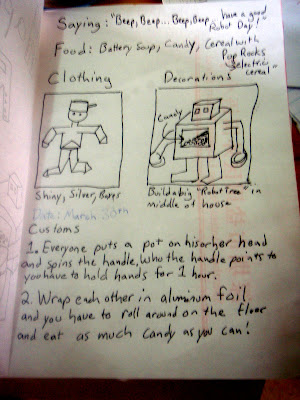 Saying: "Beep, Beep... Beep, Beep, have a good Robot Day!"
Food: Battery Soup, Candy, Cereal with Pop Rocks "Electric cereal"
Clothing Decorations
Candy
Shiny, Silver, Boxes
Build a big "Robot Tree" in
middle of house
Date: March 30th
Customs
1. Everyone puts a pot on his or her head
and spins the handle, Who the handle points to
you have to hold hands for 1 hour.
2. Wrap each other in aluminum foil
and you have to roll around on the floor
and eat as much candy as you can!